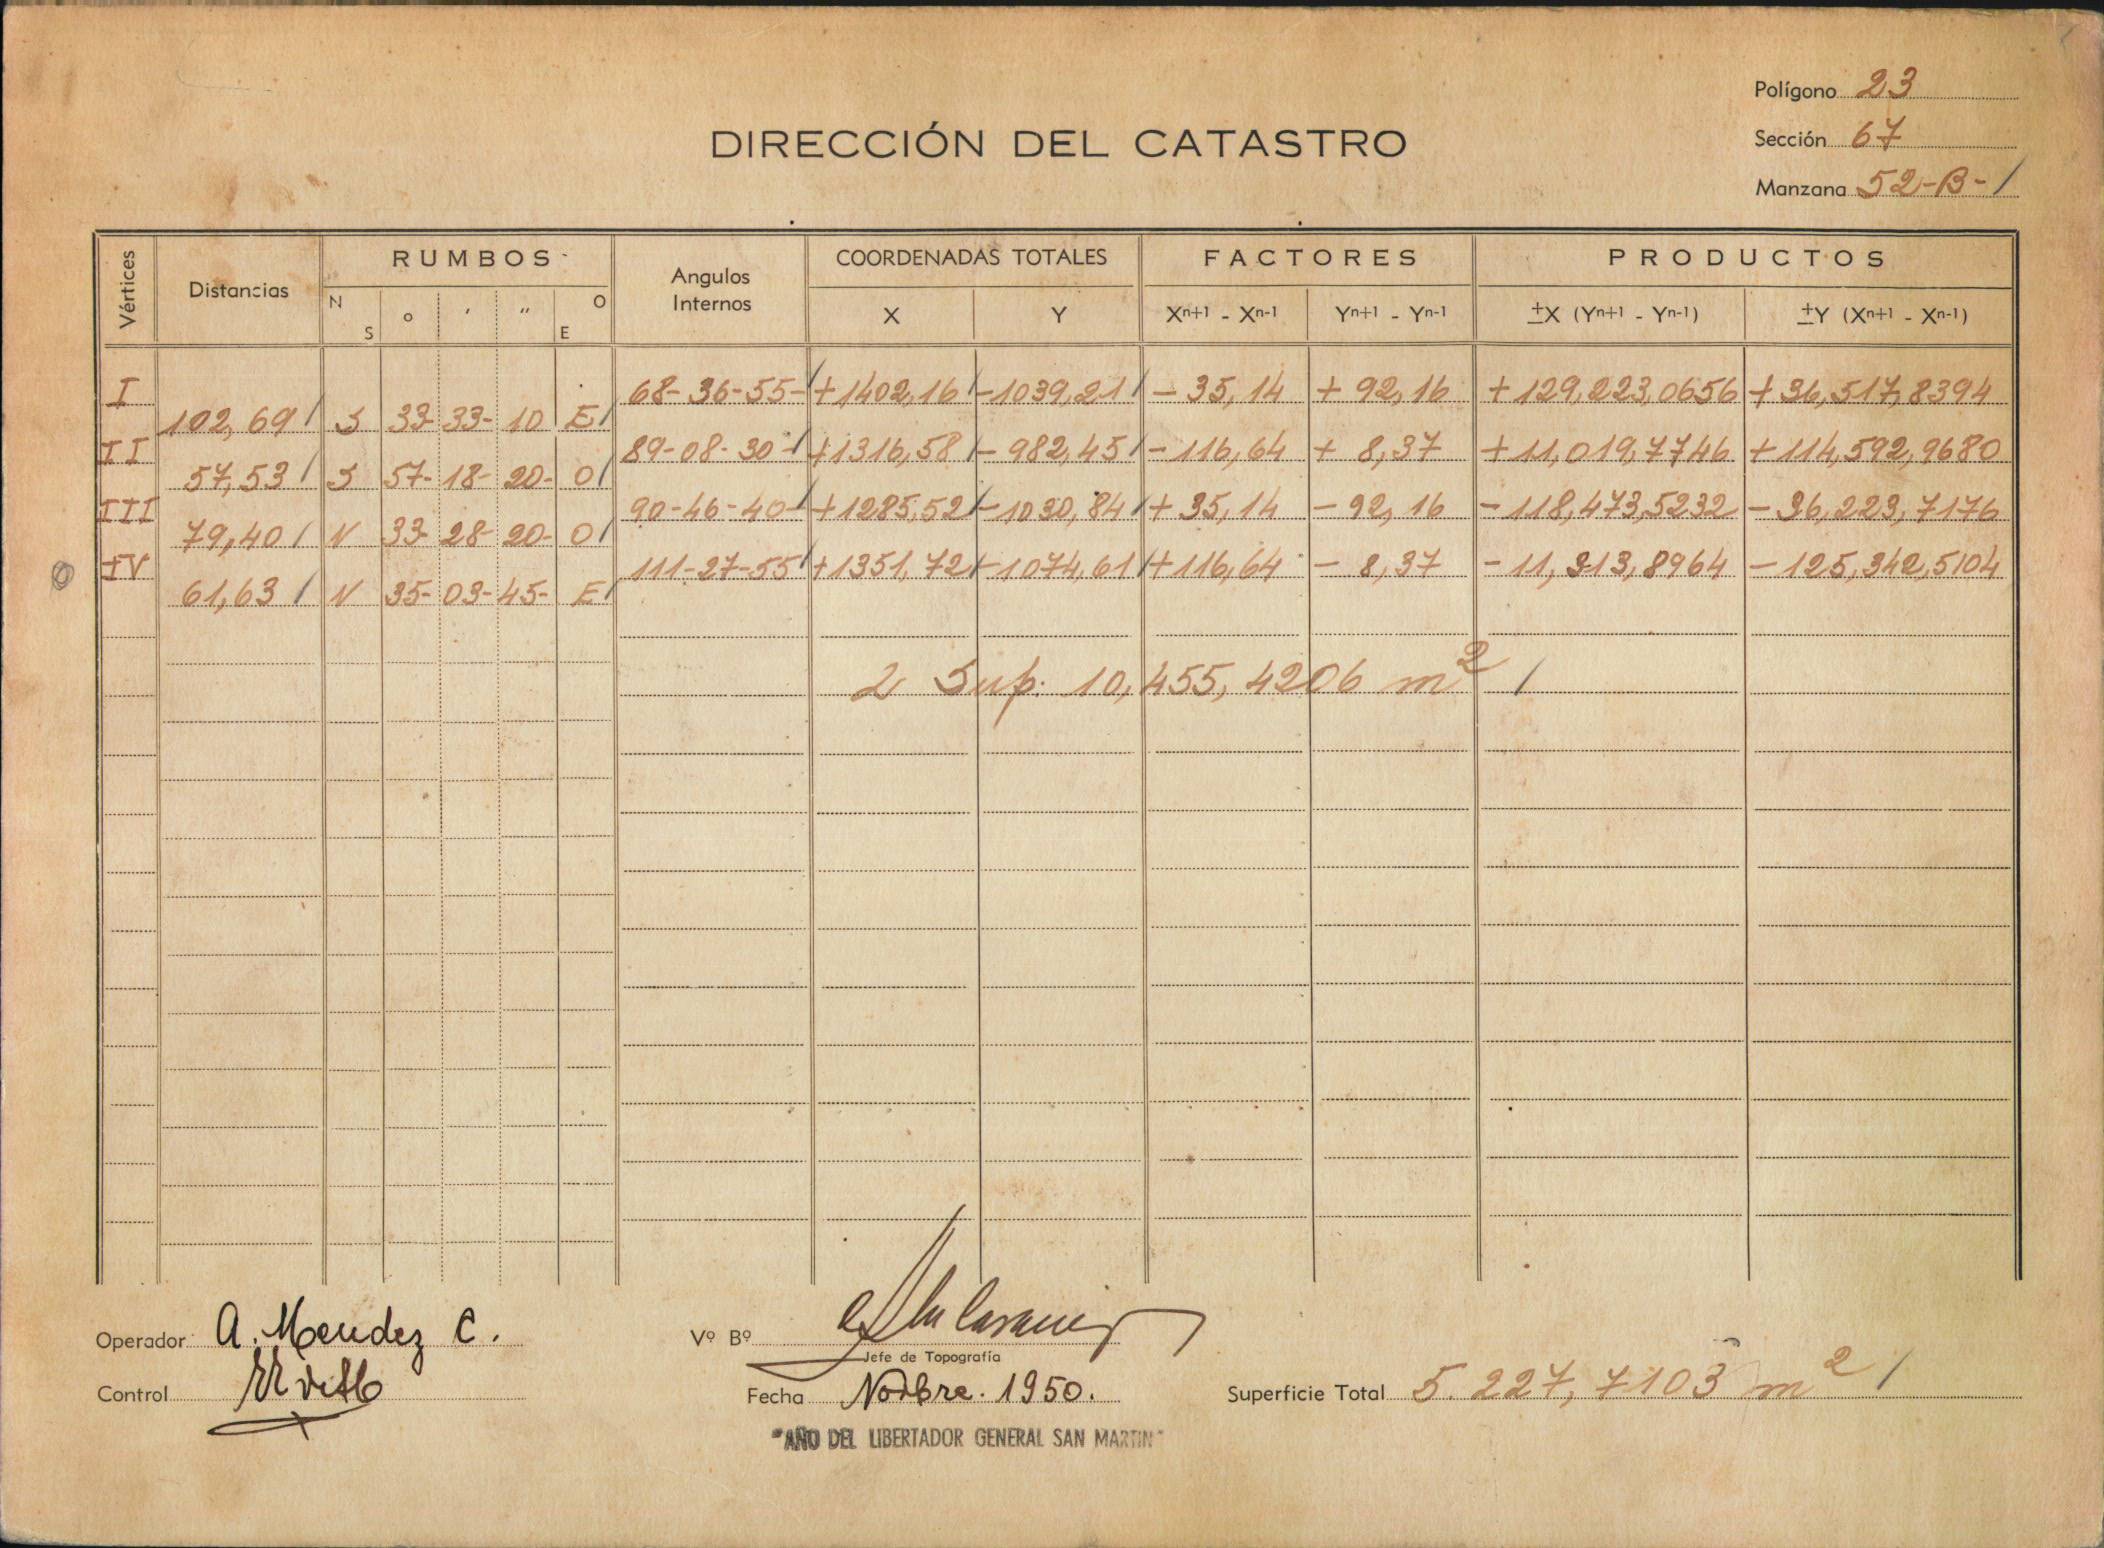 Polígono 23
DIRECCIÓN DEL CATASTRO
Sección 67
Manzana 52-B-/
Vértices Distancias RUMBOS Angulos Internos COORDENADAS TOTALES FACTORES PRODUCTOS
N S o ′ ″ O E X Y Xn+1 - Xn-1 Yn+1 - Yn-1 ±X (Yn+1 - Yn-1) ±Y (Xn+1 - Xn-1)
I 68-36-55- +1402,16 -1039,21 - 35,14 + 92,16 +129,223,0656 +36,517,8394
102,69 S 33- 33- 10 E
II 89-08-30- +1316,58 - 982,45 -116,64 + 8,37 +11,019,7746 +114,592,9680
57,53 S 57- 18- 20- O
III 90-46-40- +1285,52 -1030,84 + 35,14 - 92,16 -118,473,5232 -36,223,7176
79,40 N 33- 28- 20- O
IV 111-27-55 +1351,72 -1074,61 +116,64 - 8,37 -11,313,8964 -125,342,5104
61,63 N 35- 03- 45- E
2 Sup. 10,455,4206 m2 /
Operador A. Mendez C. Vº Bº
Jefe de Topografía
Control Fecha Novbre. 1950. Superficie Total 5.227,7103 m2 /
"AÑO DEL LIBERTADOR GENERAL SAN MARTIN"